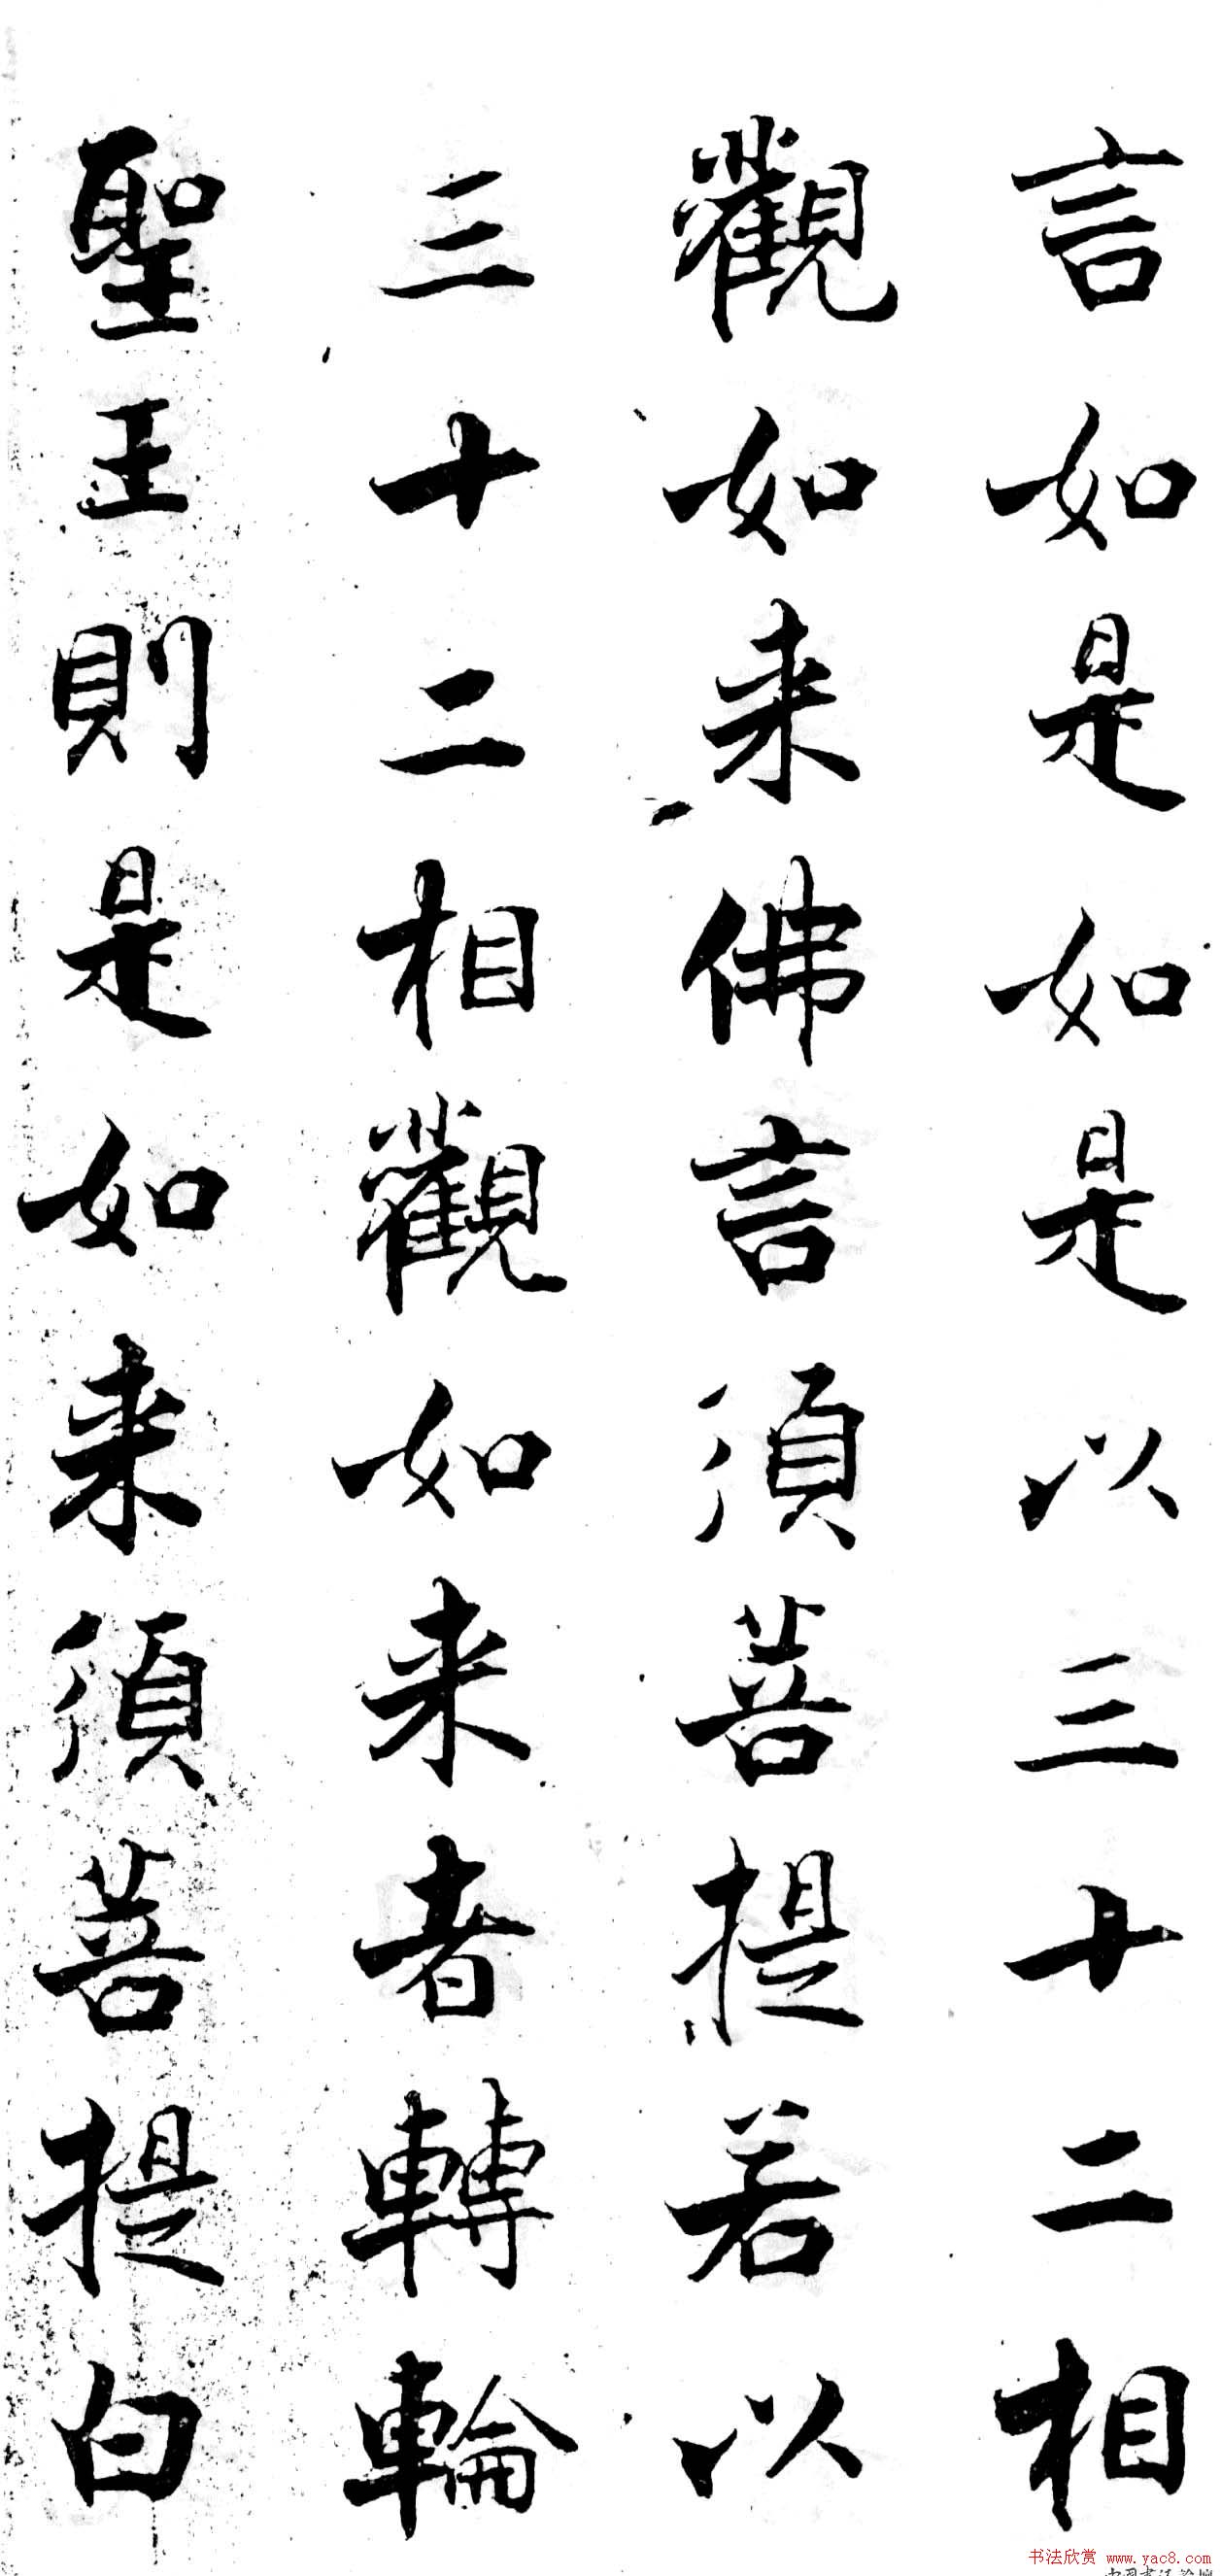 言如是如是以三十二相
觀如来佛言須菩提若以
三十二相觀如来者轉輪
聖王則是如来須菩提白
书法欣赏 www.yac8.com